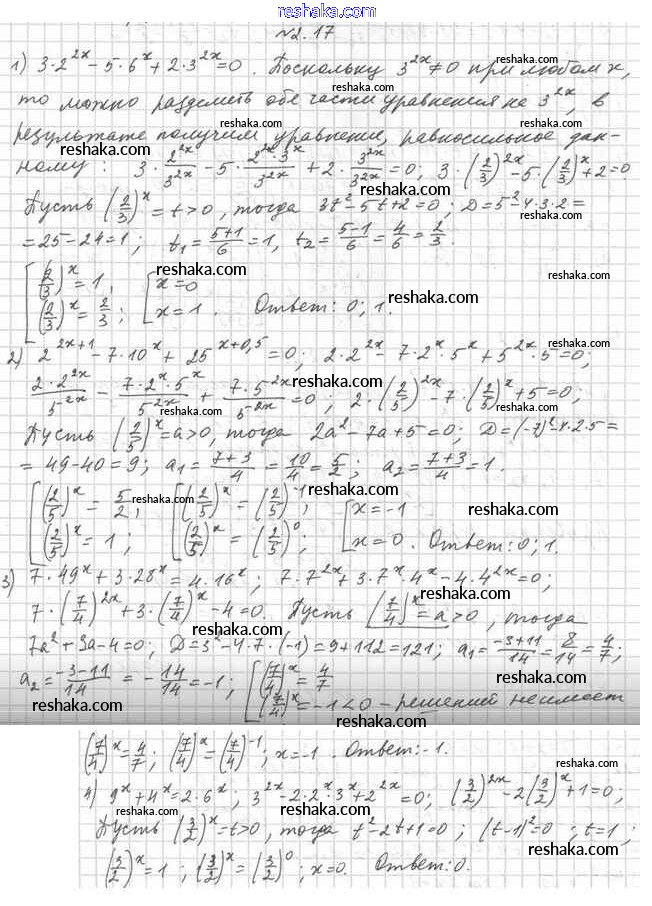 www.reshaka.com
№2.17
1) 3·2^{2x} - 5·6^x + 2·3^{2x} = 0. Поскольку 3^{2x} ≠ 0 при любом x,
то можно разделить обе части уравнения на 3^{2x}, в
результате получим уравнение, равносильное дан-
ному: 3·2^{2x}/3^{2x} - 5·2^x·3^x/3^{2x} + 2·3^{2x}/3^{2x} = 0; 3·(2/3)^{2x} - 5·(2/3)^x + 2 = 0
Пусть (2/3)^x = t > 0, тогда 3t² - 5t + 2 = 0; D = 5² - 4·3·2 =
= 25 - 24 = 1; t₁ = (5+1)/6 = 1, t₂ = (5-1)/6 = 4/6 = 2/3.
[(2/3)^x = 1, [x = 0
(2/3)^x = 2/3; x = 1. Ответ: 0; 1.
2) 2^{2x+1} - 7·10^x + 25^{x+0,5} = 0; 2·2^{2x} - 7·2^x·5^x + 5^{2x}·5 = 0;
2·2^{2x}/5^{2x} - 7·2^x·5^x/5^{2x} + 7·5^{2x}/5^{2x} = 0; 2·(2/5)^{2x} - 7·(2/5)^x + 5 = 0;
Пусть (2/5)^x = a > 0, тогда 2a² - 7a + 5 = 0; D = (-7)² - 4·2·5 =
= 49 - 40 = 9; a₁ = (7+3)/4 = 10/4 = 5/2; a₂ = (7+3)/4 = 1.
[(2/5)^x = 5/2, [(2/5)^x = (2/5)^{-1}, [x = -1
(2/5)^x = 1; (2/5)^x = (2/5)^0; x = 0. Ответ: 0; 1.
3) 7·49^x + 3·28^x = 4·16^x; 7·7^{2x} + 3·7^x·4^x - 4·4^{2x} = 0;
7·(7/4)^{2x} + 3·(7/4)^x - 4 = 0. Пусть (7/4)^x = a > 0, тогда
7a² + 3a - 4 = 0; D = 3² - 4·7·(-1) = 9 + 112 = 121; a₁ = (-3+11)/14 = 8/14 = 4/7;
a₂ = (-3-11)/14 = -14/14 = -1; [(7/4)^x = 4/7
(7/4)^x = -1 < 0 - решений не имеет
(7/4)^x = 4/7; (7/4)^x = (7/4)^{-1}; x = -1. Ответ: -1.
4) 9^x + 4^x = 2·6^x; 3^{2x} - 2·2^x·3^x + 2^{2x} = 0; (3/2)^{2x} - 2(3/2)^x + 1 = 0;
Пусть (3/2)^x = t > 0, тогда t² - 2t + 1 = 0; (t-1)² = 0; t = 1;
(3/2)^x = 1; (3/2)^x = (3/2)^0; x = 0. Ответ: 0.